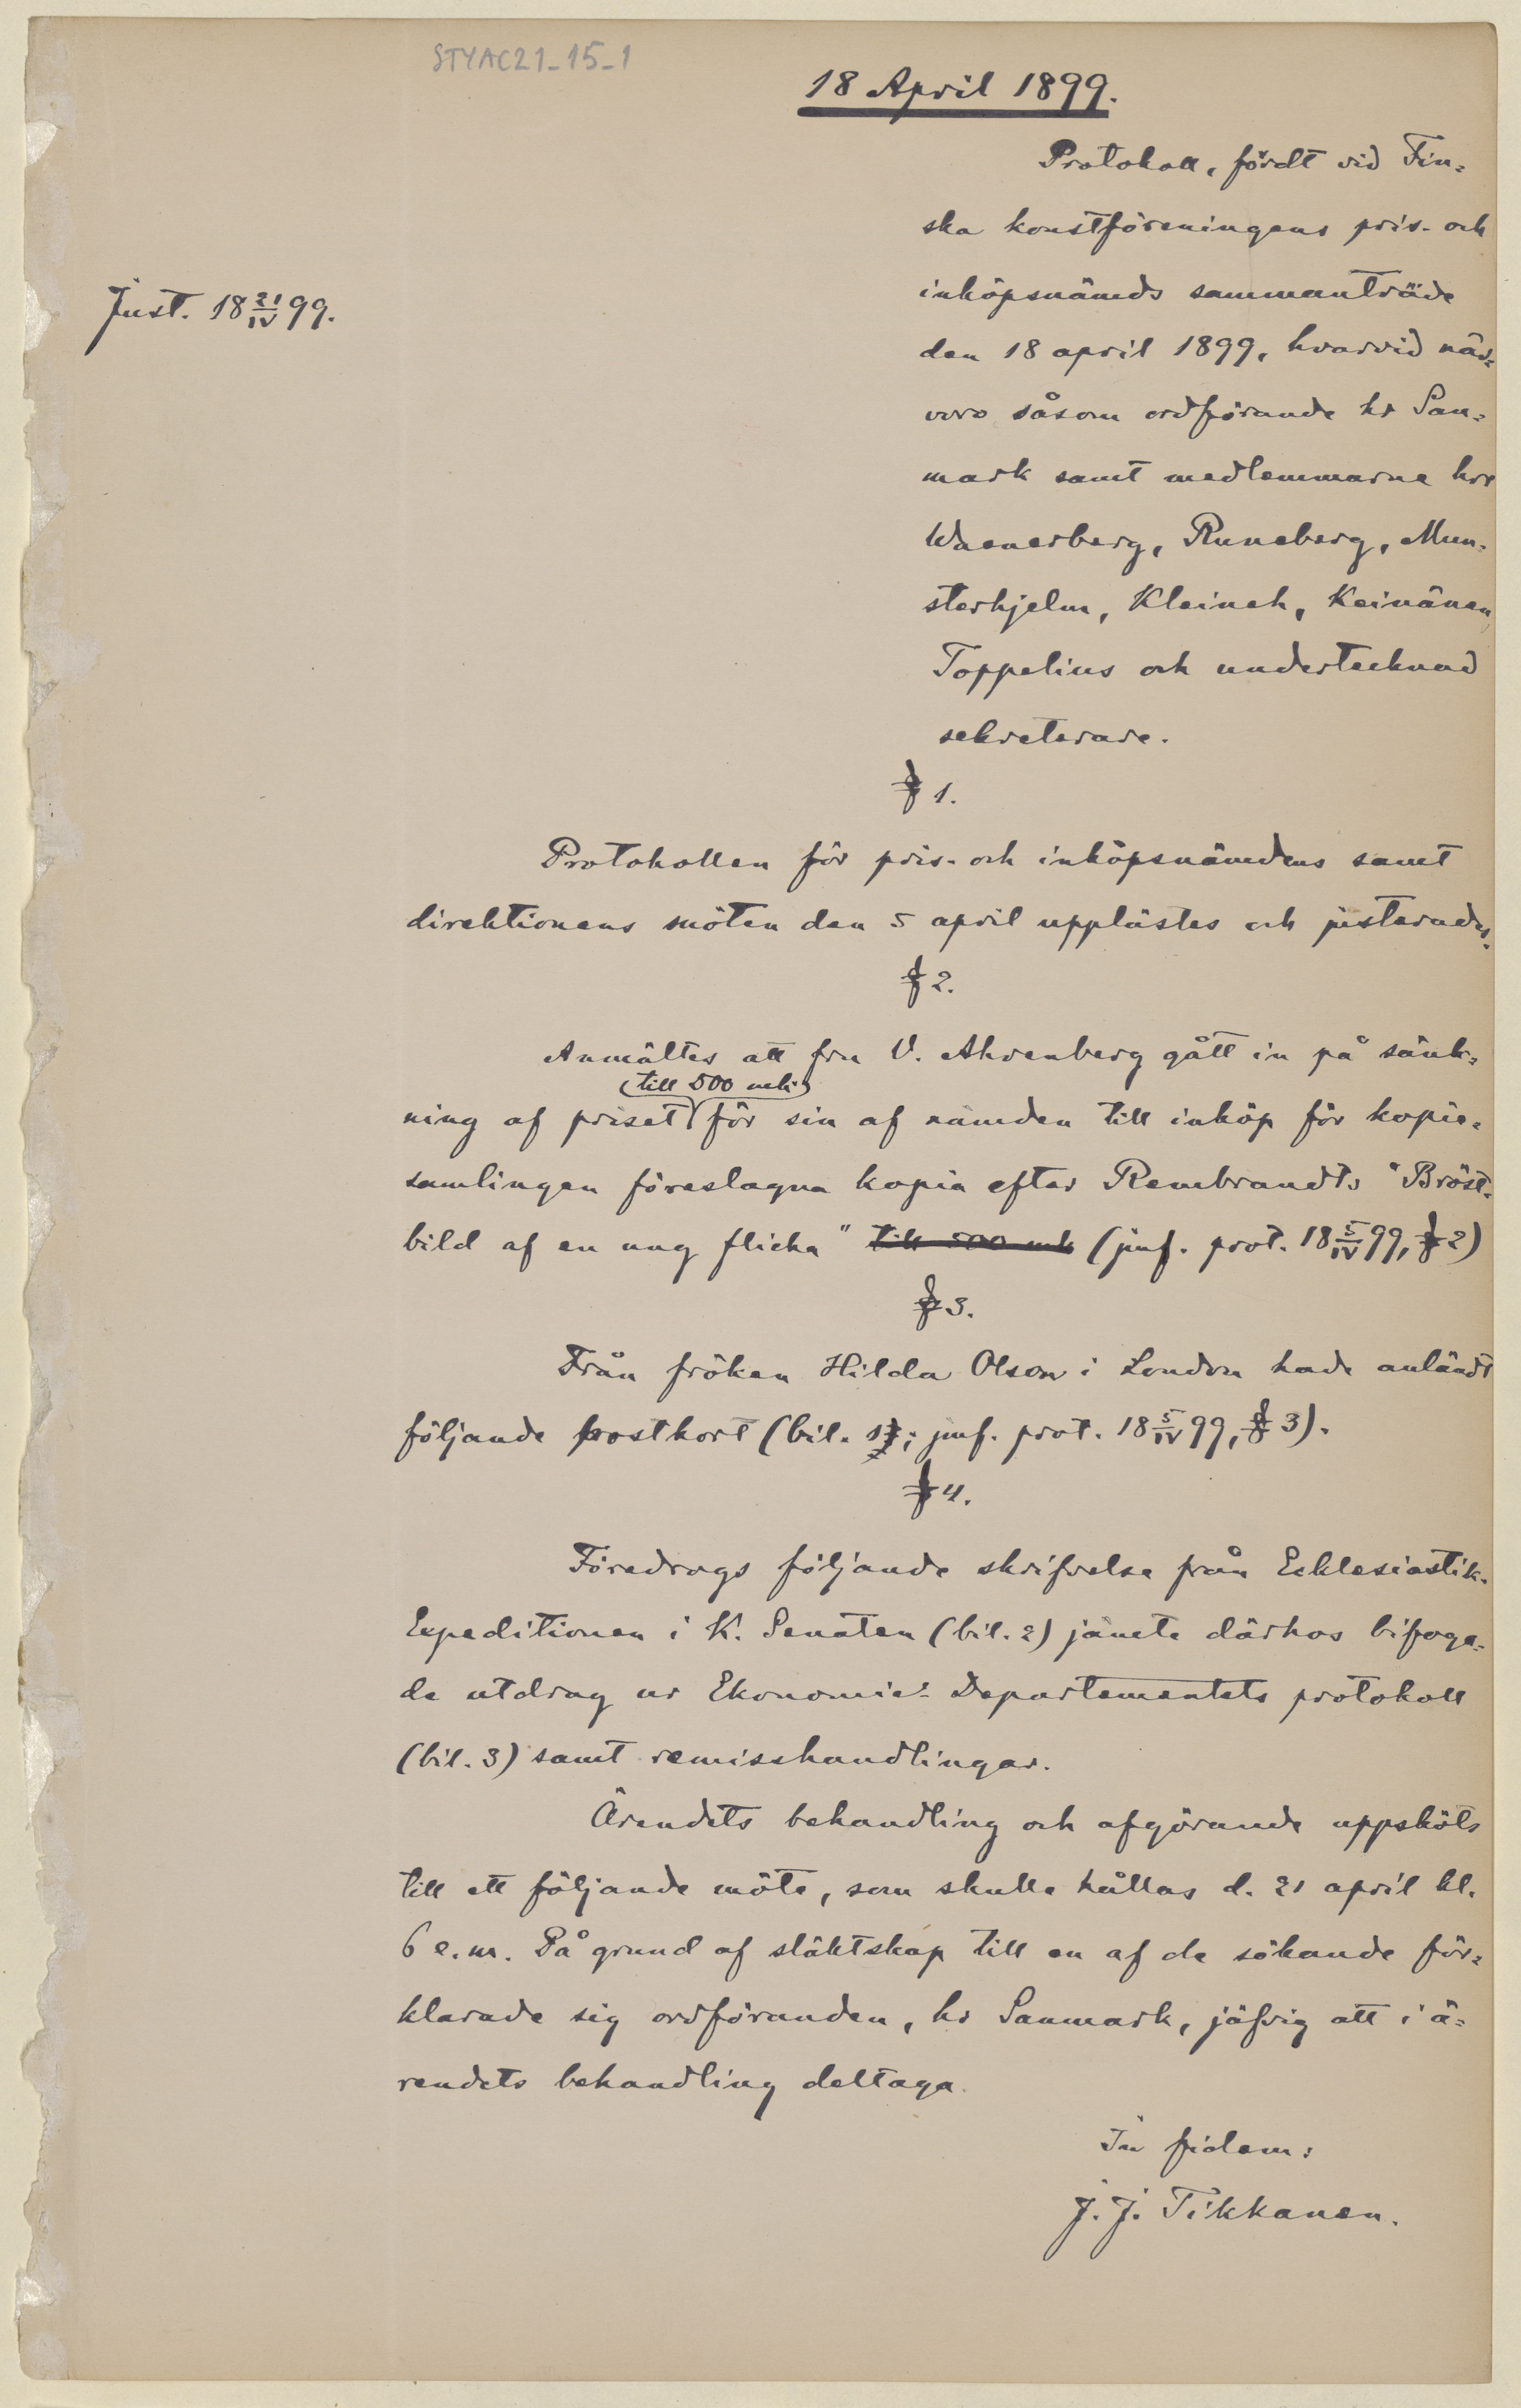 STYAC21_15_1
18 April 1899.
Protokoll, fördt vid Fin-
ska konstföreningens pris- och
inköpsnämds sammanträde
Just. 18 21/IV 99.
den 18 april 1899, hvarvid när-
voro såsom ordförande hr San-
mark samt medlemmarne hrr
Waenerberg, Runeberg, Mun-
sterhjelm, Kleineh, Keinänen,
Toppelius och undertecknad
sekreterare.
§ 1.
Protokollen för pris- och inköpsnämdens samt
direktionens möten den 5 april upplästes och justerades.
§ 2.
Anmältes att fru V. Ahrenberg gått in på sänk-
(till 500 mk)
ning af priset för sin af nämden till inköp för kopie-
samlingen föreslagna kopia efter Rembrandts "Bröst-
bild af en ung flicka" till 500 mk (jmf. prot. 18 5/IV 99, § 2)
§ 3.
Från fröken Hilda Olson i London hade anländt
följande postkort (bil. 1; jmf. prot. 18 5/IV 99, § 3).
§ 4.
Föredrogs följande skrifvelse från Ecklesiastik-
Expeditionen i K. Senaten (bil. 2) jämte därhos bifoga-
de utdrag ur Ekonomie-Departementets protokoll
(bil. 3) samt remisshandlingar.
Ärendets behandling och afgörande uppsköts
till ett följande möte, som skulle hållas d. 21 april kl.
6 e.m. På grund af släktskap till en af de sökande för-
klarade sig ordföranden, hr Sanmark, jäfvig att i ä-
rendets behandling deltaga.
In fidem:
J. J. Tikkanen.